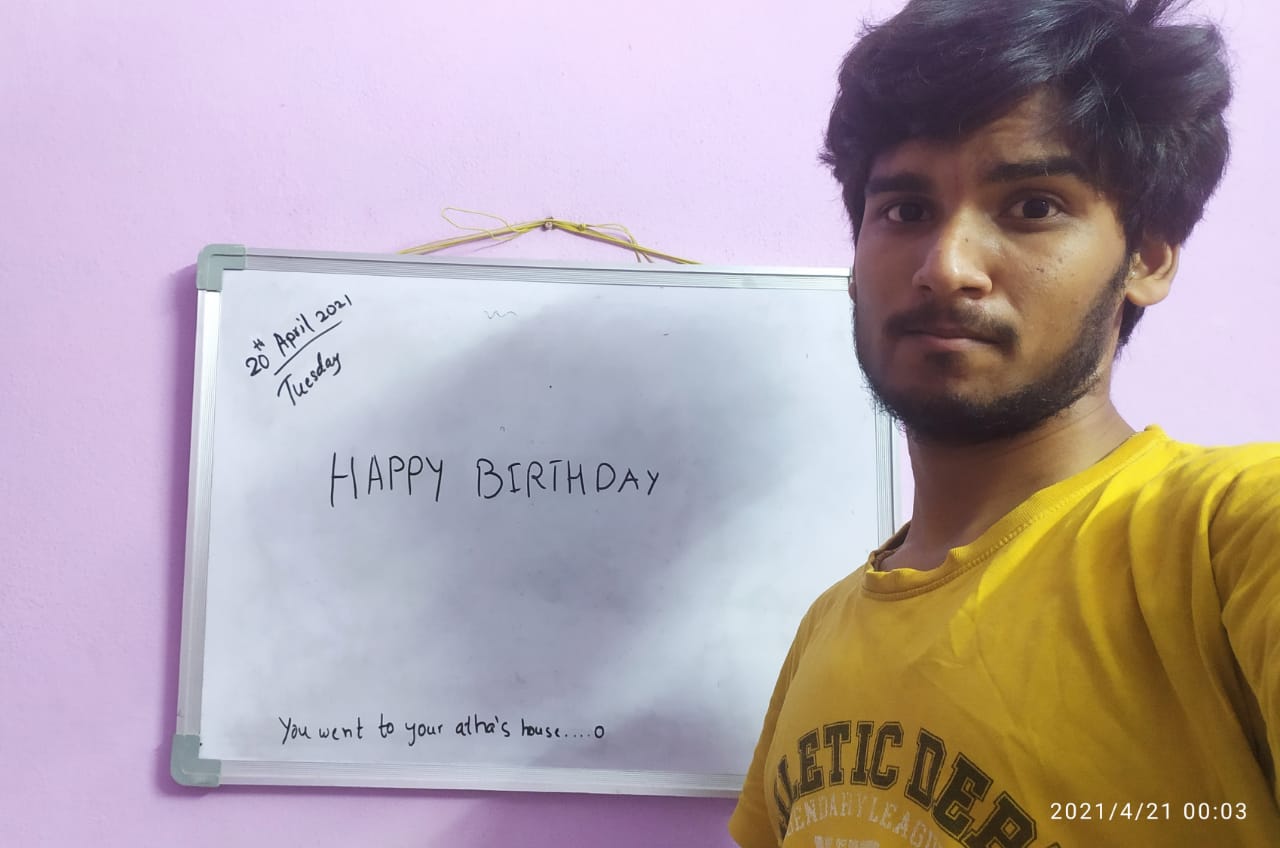 20th April 2021
Tuesday
HAPPY BIRTHDAY
You went to your atha's house....o
LETIC DEP
ENDARY LEAGU
2021/4/21 00:03